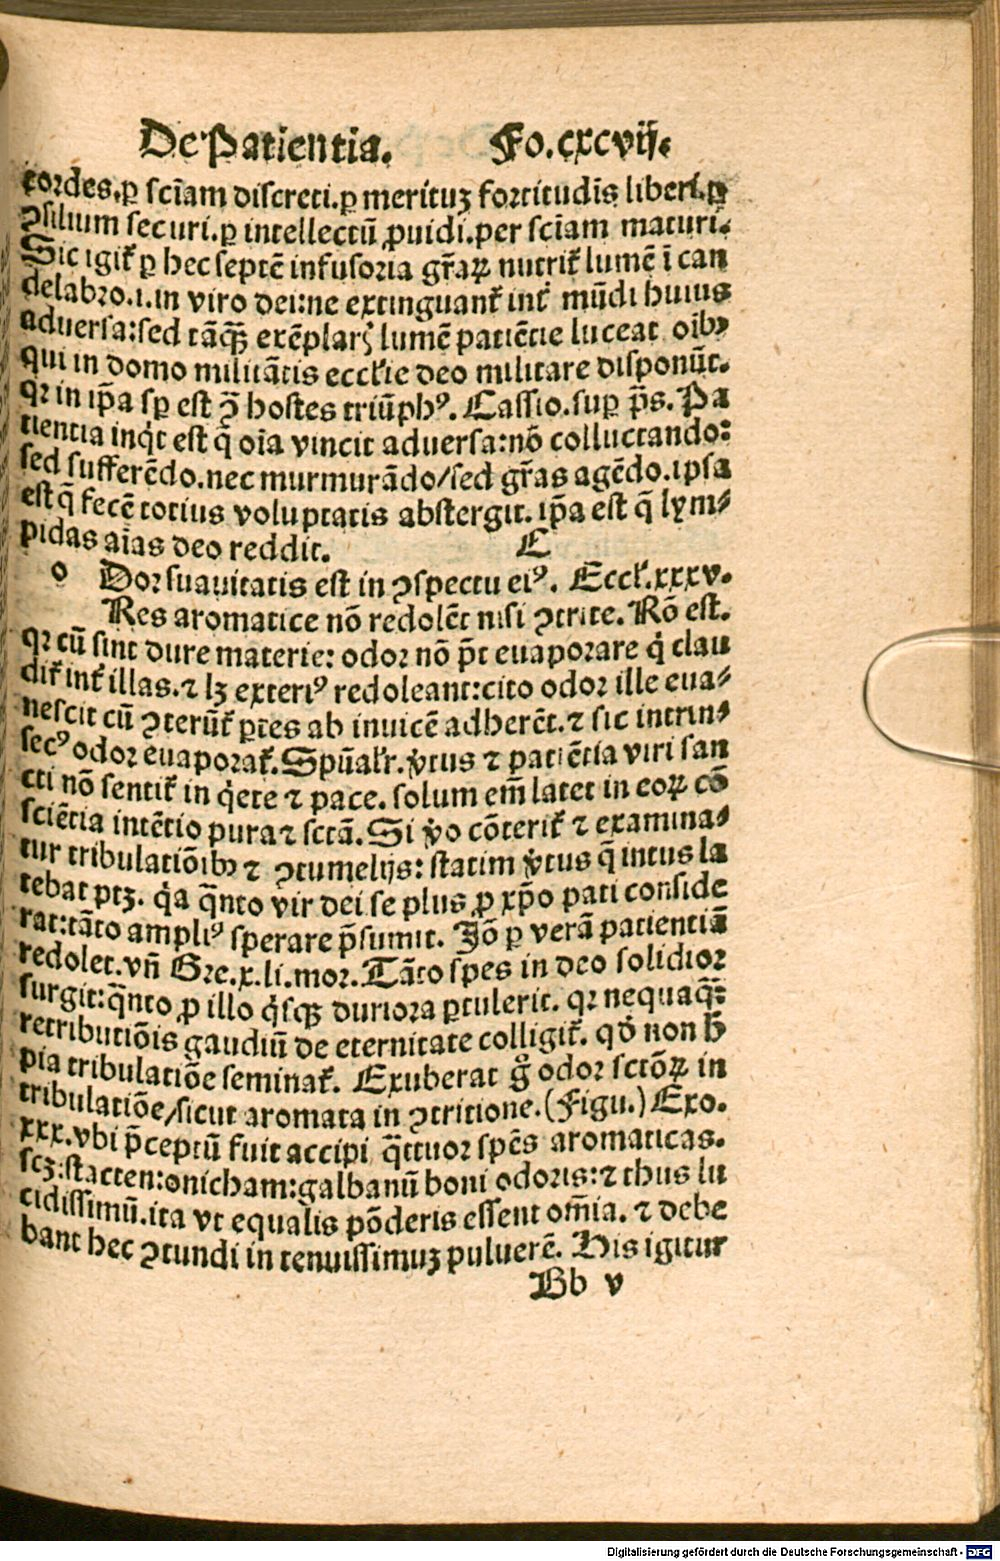 De Patientia. Fo.cxcvij.
cordes.ꝑ sciam discreti.ꝑ merituʒ fortitudīs liberi.ꝑ
ꝯsilium securi.ꝑ intellectū ꝓuidi.per sciam maturi.
Sic igit̃ ꝑ hec septē infusoria gr̃aꝝ nutrit̃ lumē ī can
delabro.i.in viro dei:ne extinguant̃ int̃ mūdi huius
aduersa:sed tāqꝫ exēplarꝭ lumē patiētie luceat oībꝰ
qui in domo militātis eccl̃ie deo militare disponūt.
qꝛ in ip̄a sꝑ est ꝯ̄ hostes triūphꝰ. Cassio.suꝑ p̄s. Pa
tientia inqͥt est q̄ oīa vincit aduersa:nō colluctando:
sed sufferēdo.nec murmurādo/sed gr̃as agēdo.ipsa
est q̄ fecē totius voluptatis abstergit. ip̄a est q̄ lym⸗
pidas aīas deo reddit. C
o Dor suauitatis est in ꝯspectu eiꝰ. Eccl̃.xxxv.
Res aromatice nō redolēt nisi ꝯtrite. Rō est.
qꝛ cū sint dure materie: odor nō p̄t euaporare qͥ clau
dit̃ int̃ illas.⁊ lꝫ exteriꝰ redoleant:cito odor ille eua⸗
nescit cū ꝯterūt̃ ꝑtes ab inuicē adherēt.⁊ sic intrin⸗
secꝰ odor euaporat̃. Spūal̃r. v̓tus ⁊ patiētia viri san
cti nō sentit̃ in qͥete ⁊ pace. solum em̄ latet in eoꝝ cō
sciētia intētio pura ⁊ sctā. Si v̓o cōterit̃ ⁊ examina⸗
tur tribulatiōibꝰ ⁊ ꝯtumelijs: statim v̓tus q̄ intus la
tebat ptꝫ. qͥa q̄nto vir dei se plus ꝓ xp̄o pati conside
rat:tāto ampliꝰ sperare p̄sumit. Iō ꝑ verā patientiā
redolet.vn̄ Gre.x.li.mor. Tāto spes in deo solidior
surgit:q̄nto ꝓ illo qͥsqꝫ duriora ꝑtulerit. qꝛ nequaqꝫ
retributiōis gaudiū de eternitate colligit̃. qđ non ħ
pia tribulatiōe seminat̃. Exuberat gͦ odor sctōꝝ in
tribulatiōe/sicut aromata in ꝯtritione.(Figu.) Exo.
xxx.vbi p̄ceptū fuit accipi q̄ttuor spēs aromaticas.
scꝫ:stacten:onicham:galbanū boni odoris:⁊ thus lu
cidissimū.ita vt equalis pōderis essent om̄ia. ⁊ debe
bant hec ꝯtundi in tenuissimuʒ puluerē. His igitur
Bb v
Digitalisierung gefördert durch die Deutsche Forschungsgemeinschaft - DFG